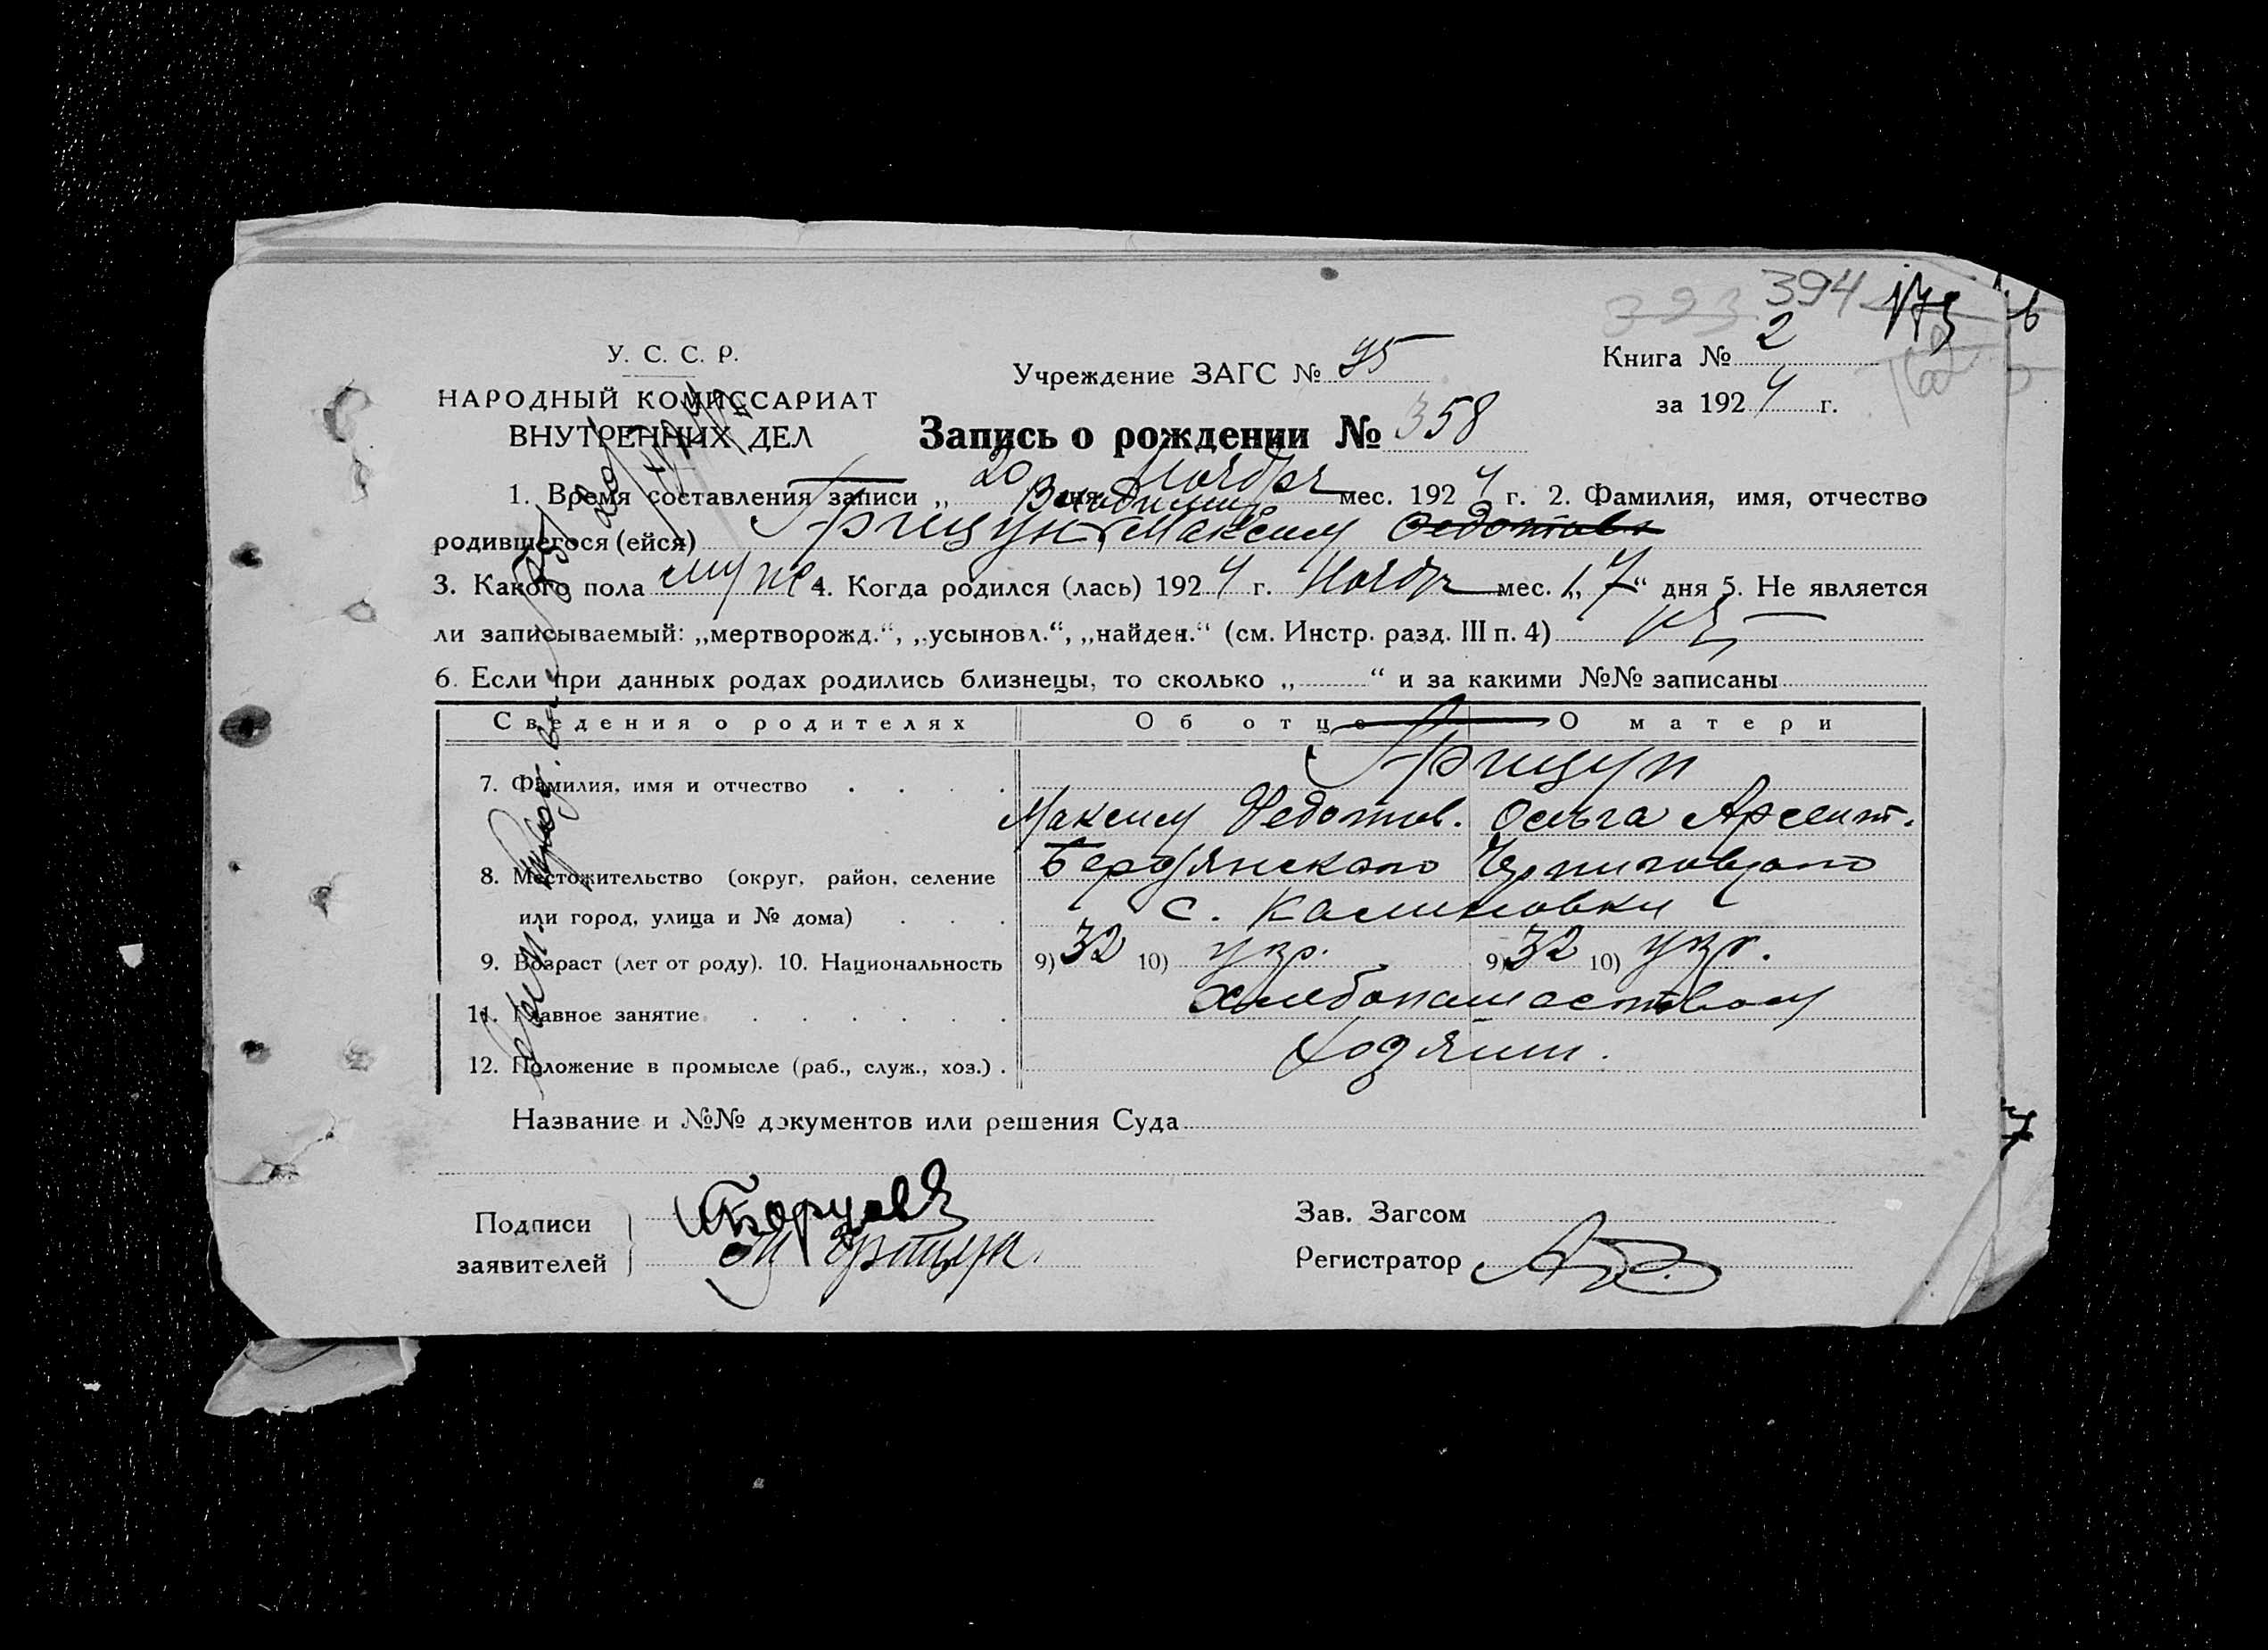 394 173
У. С. С. Р.
НАРОДНЫЙ КОМИССАРИАТ
ВНУТРЕННИХ ДЕЛ
Учреждение ЗАГС № 95
Книга № 2
за 1924 г.
Запись о рождении № 358
1. Время составления записи „20 дня Ноябр мес. 1924 г. 2. Фамилия, имя, отчество
Владимир
родившегося (ейся) Грищун Максим Федотов
3. Какого пола муж 4. Когда родился (лась) 1924 г. Ноябр мес. „17“ дня 5. Не является
ли записываемый: „мертворожд.“, „усыновл.“, „найден.“ (см. Инстр. разд. III п. 4)
6. Если при данных родах родились близнецы, то сколько „ “ и за какими №№ записаны
Сведения о родителях Об отце О матери
7. Фамилия, имя и отчество Грищун
Максим Федотов. Ольга Арсент.
8. Местожительство (округ, район, селение Бердянского Черниговского
или город, улица и № дома) с. Калиновки
9. Возраст (лет от роду). 10. Национальность 9) 32 10) укр. 9) 32 10) укр.
11. Главное занятие Хлебопашеством
12. Положение в промысле (раб., служ., хоз.) Ходяин.
Название и №№ документов или решения Суда
Подписи
заявителей
Зав. Загсом
Регистратор